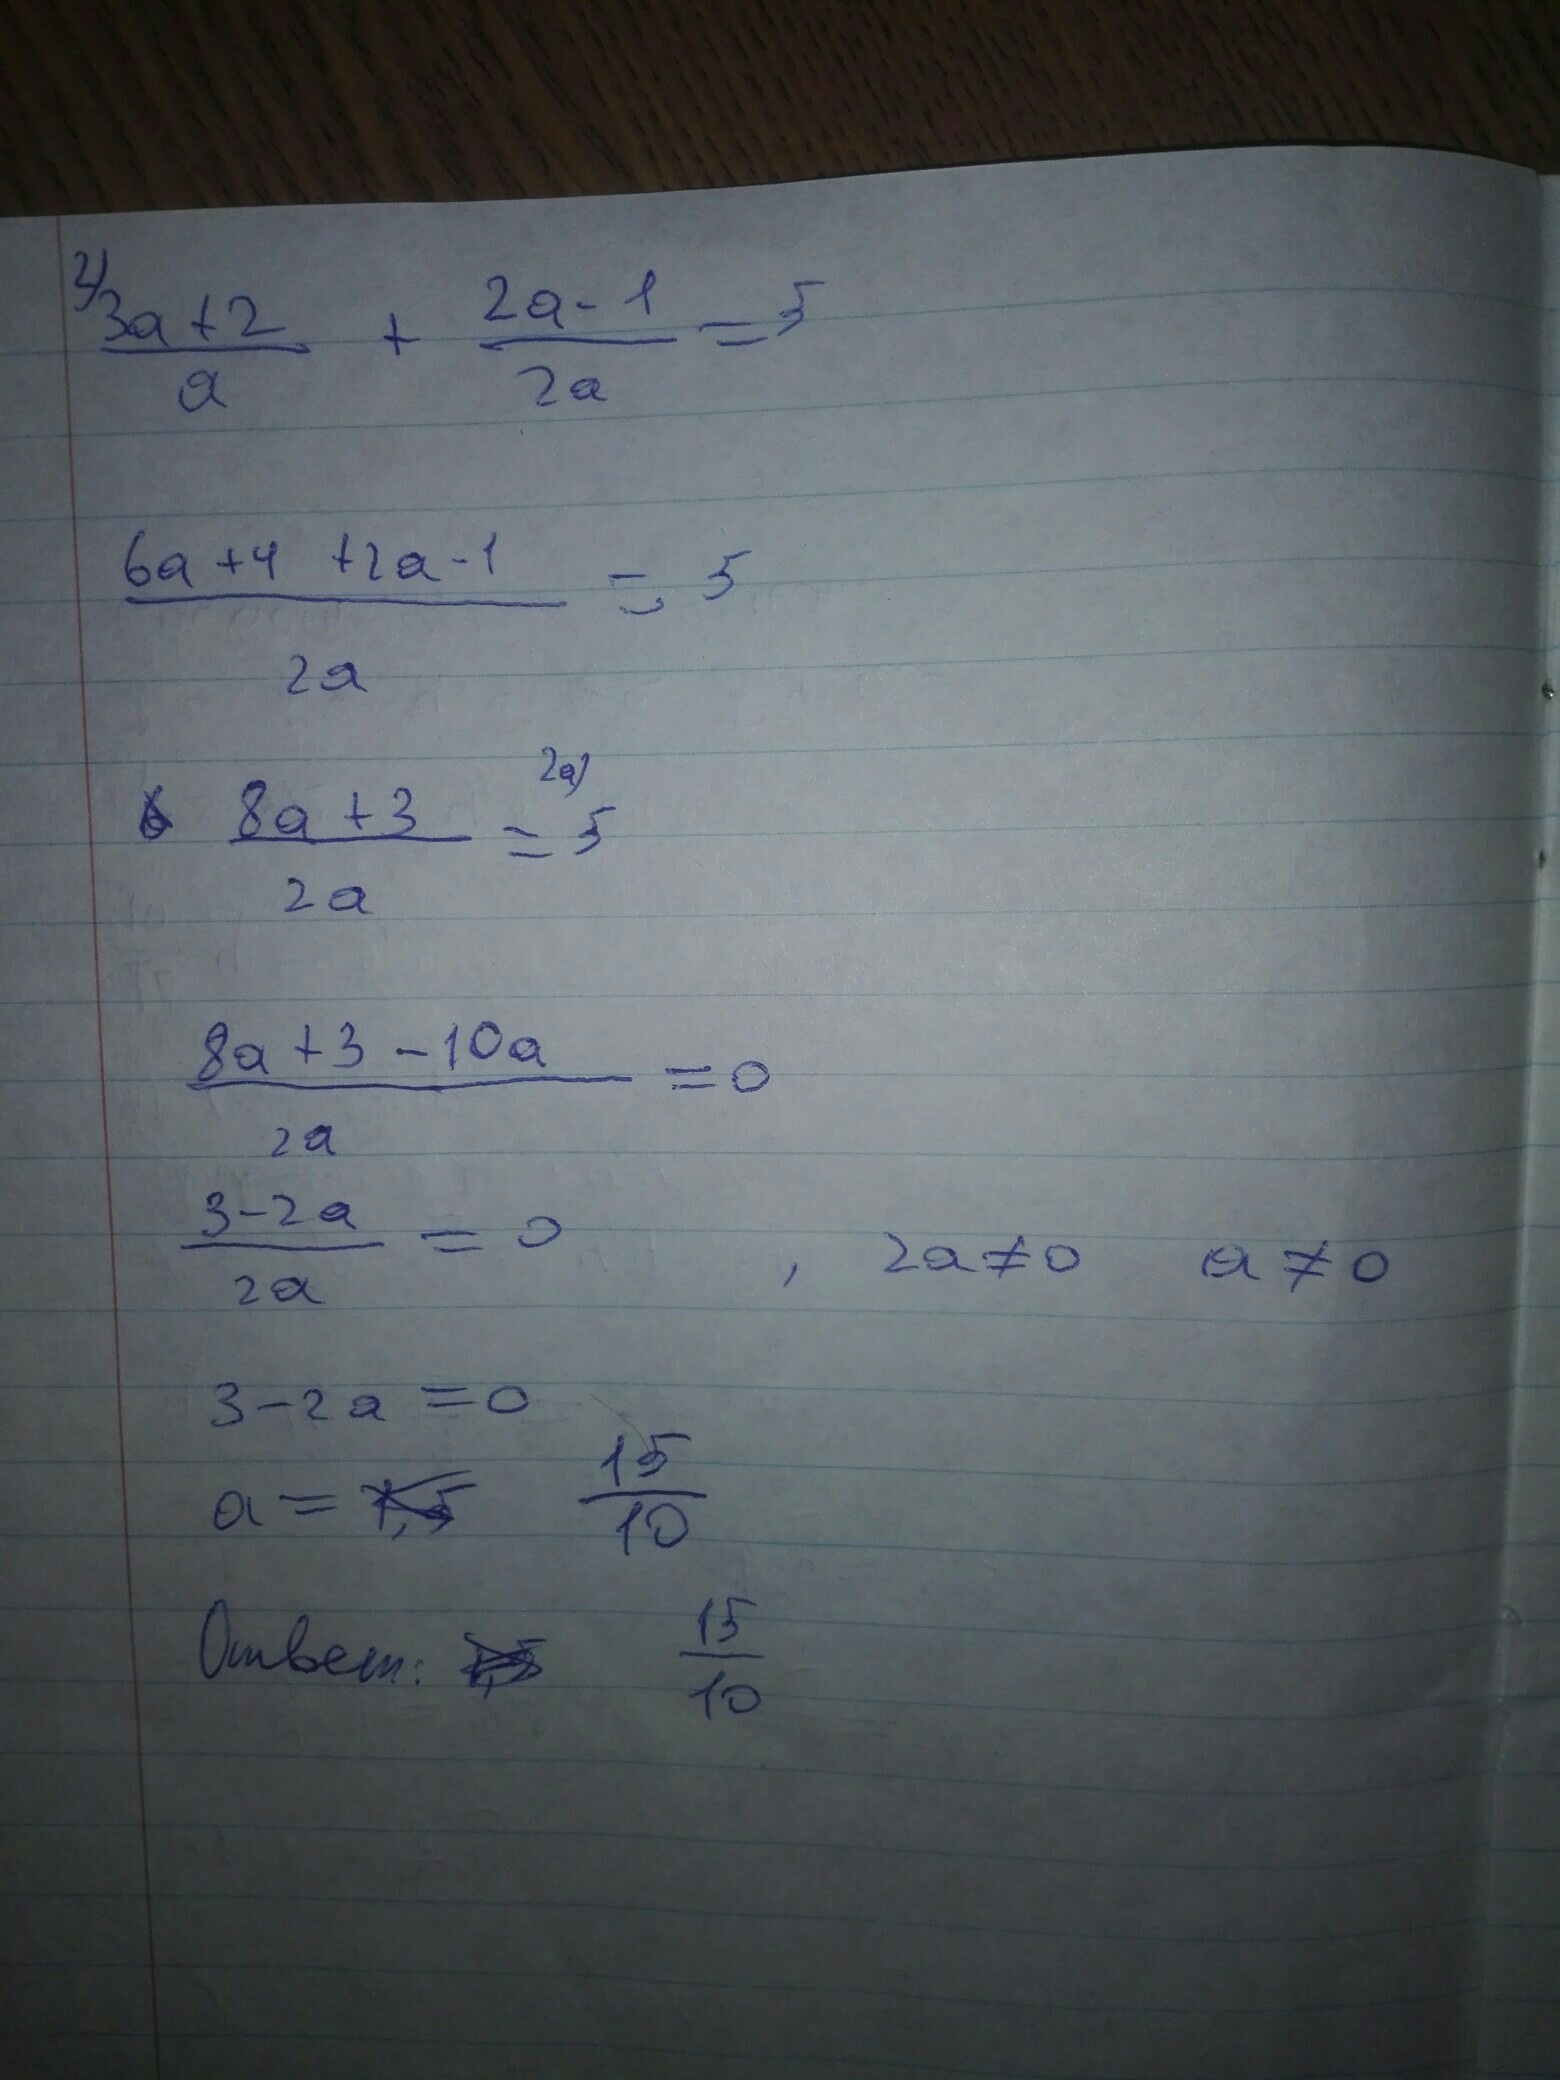 2/ (3a+2)/a + (2a-1)/2a = 5
(6a+4 +2a-1)/2a = 5
(8a+3)/2a = 5 2a)
(8a+3-10a)/2a = 0
(3-2a)/2a = 0 , 2a≠0 a≠0
3-2a=0
a = 15/10
Ответ: 15/10